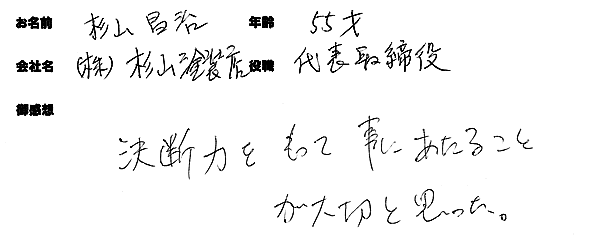 お名前 杉山 昌治 年齢 55才
会社名 (株)杉山塗装店 役職 代表取締役
御感想
決断力をもって事にあたること
が大切と思った。